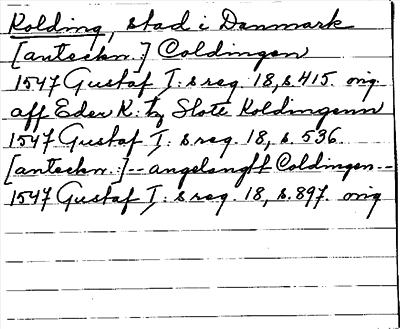 Kolding, stad i Danmark
[anteckn.] Coldingen
1547 Gustaf I: s reg. 18, s. 415. orig.
aff Eder K: tz Slott Koldingenn
1547 Gustaf I: s reg. 18, s. 536.
[anteckn.:] -- angelengtt Coldingen --
1547 Gustaf I: s reg. 18, s. 897. orig